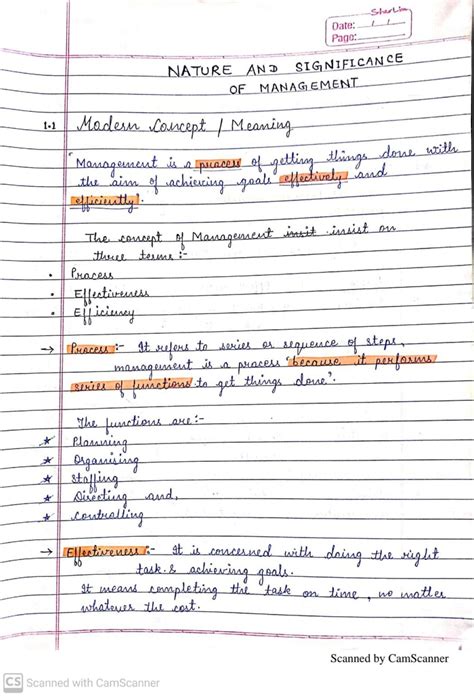 Sharlin
Date: / /
Page:
NATURE AND SIGNIFICANCE
OF MANAGEMENT
1.1 Modern Concept / Meaning
'Management is a process of getting things done with
the aim of achieving goals effectively and
efficiently'.
The concept of Management insist on
three terms :-
• Process
• Effectiveness
• Efficiency
→ Process :- It refers to series or sequence of steps,
management is a process 'because it performs
series of functions to get things done'.
The functions are :-
★ Planning
★ Organising
★ Staffing
★ Directing and,
★ Controlling
→ Effectiveness :- It is concerned with doing the right
task & achieving goals.
It means completing the task on time, no matter
whatever the cost.
Scanned by CamScanner
CS Scanned with CamScanner